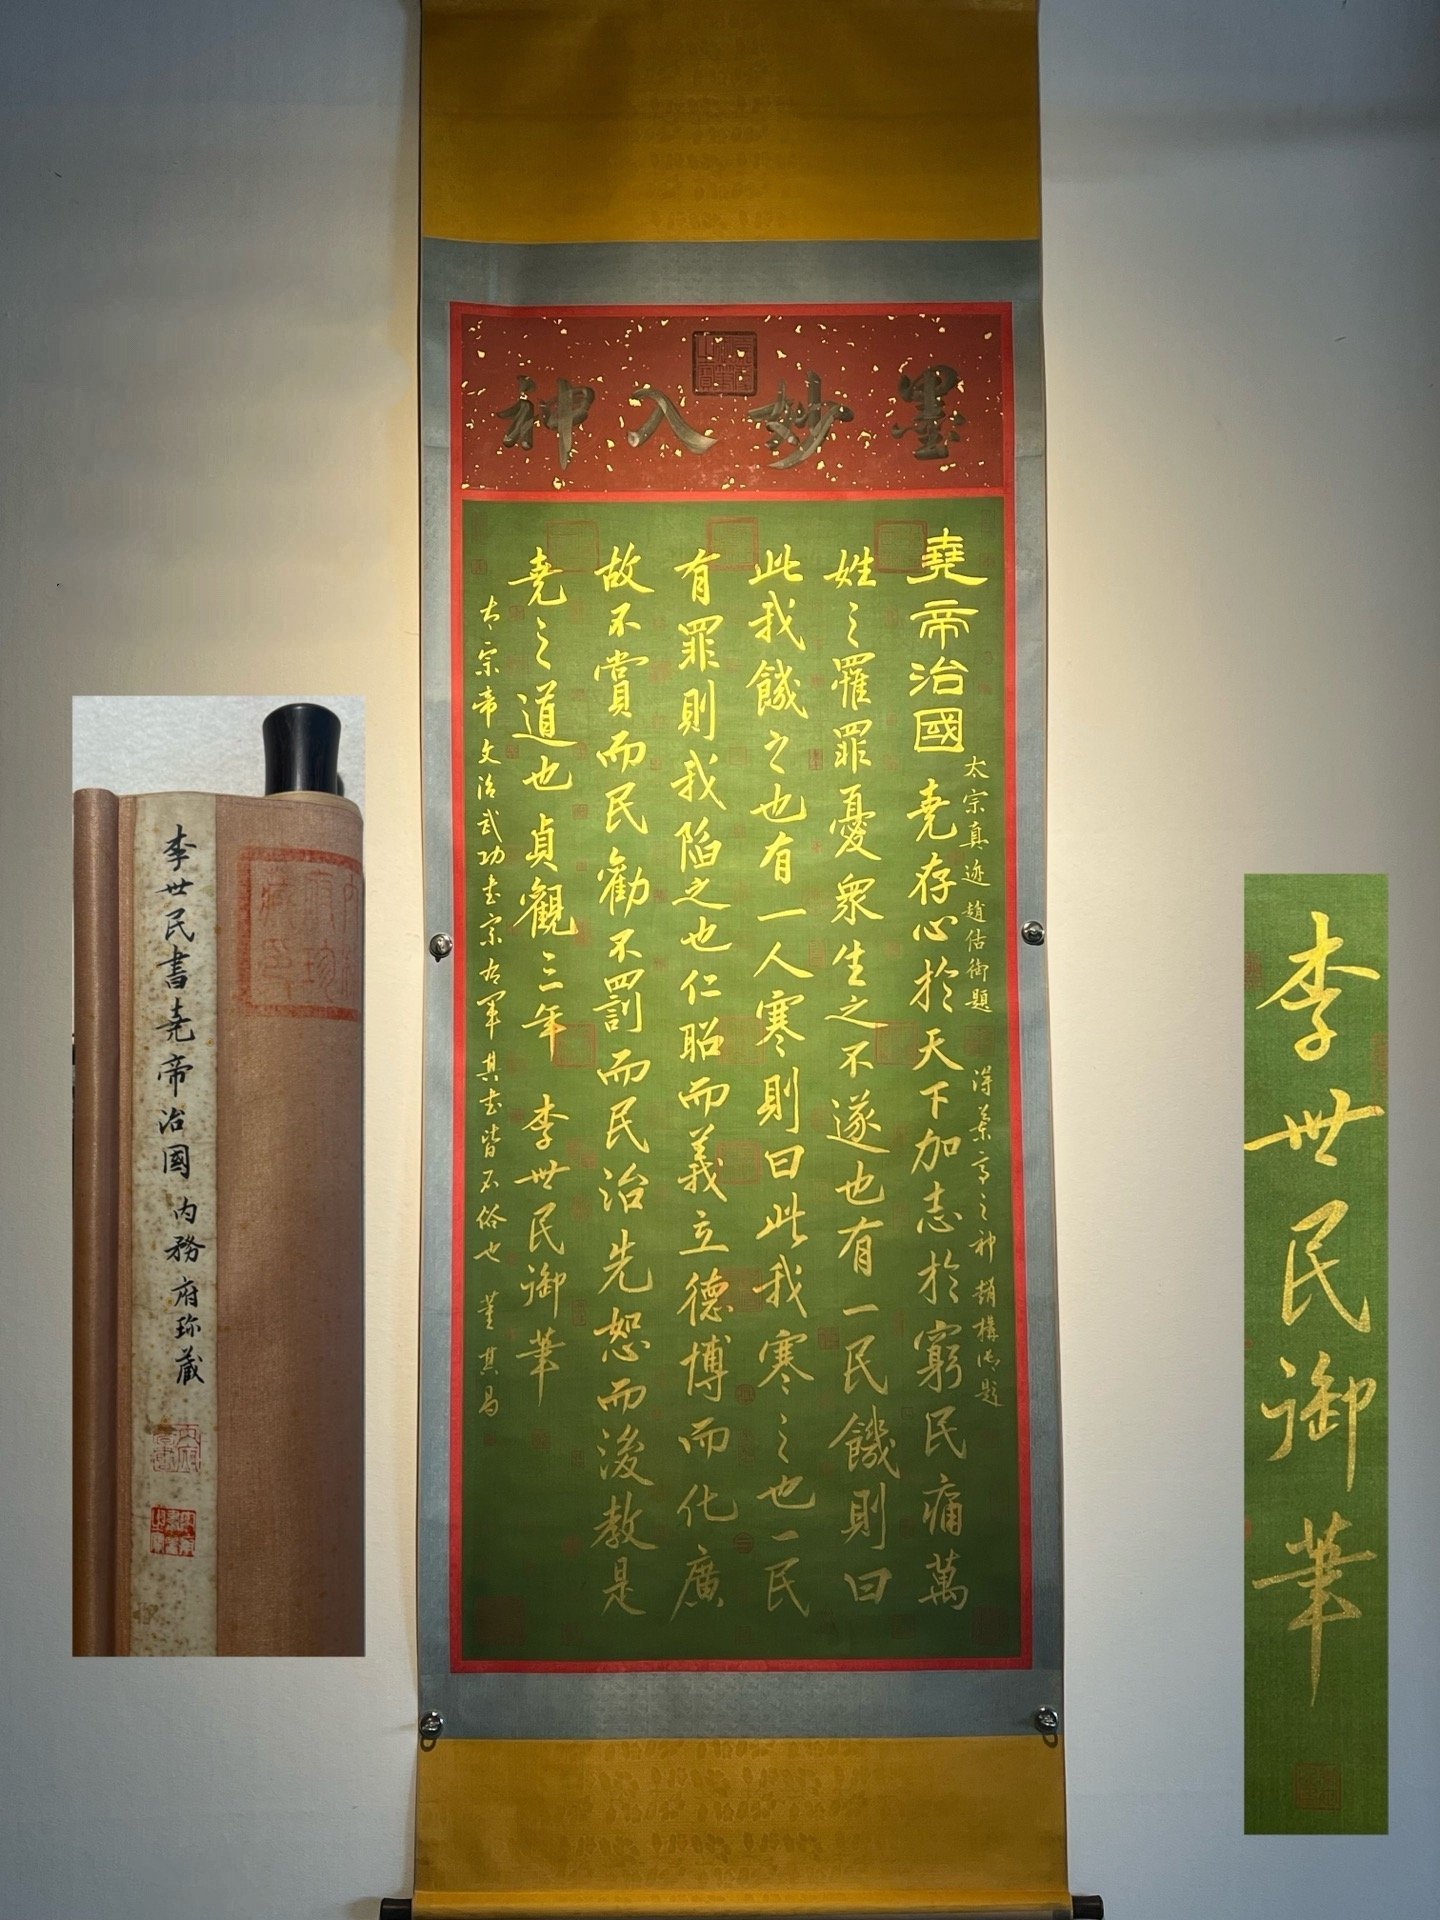 墨妙入神
堯帝治國
太宗真迹趙佶御題
淂業高之神趙構御題
堯存心於天下加志於窮民痛萬
姓之罹罪憂衆生之不遂也有一民饑則曰
此我饑之也有一人寒則曰此我寒之也一民
有罪則我陷之也仁昭而義立德博而化廣
故不賞而民勸不罰而民治先恕而後教是
堯之道也貞觀三年 李世民御筆
太宗帝文治武功書宗右軍其書皆不俗也 董其昌
李世民書堯帝治國 內務府珎藏
李世民御筆